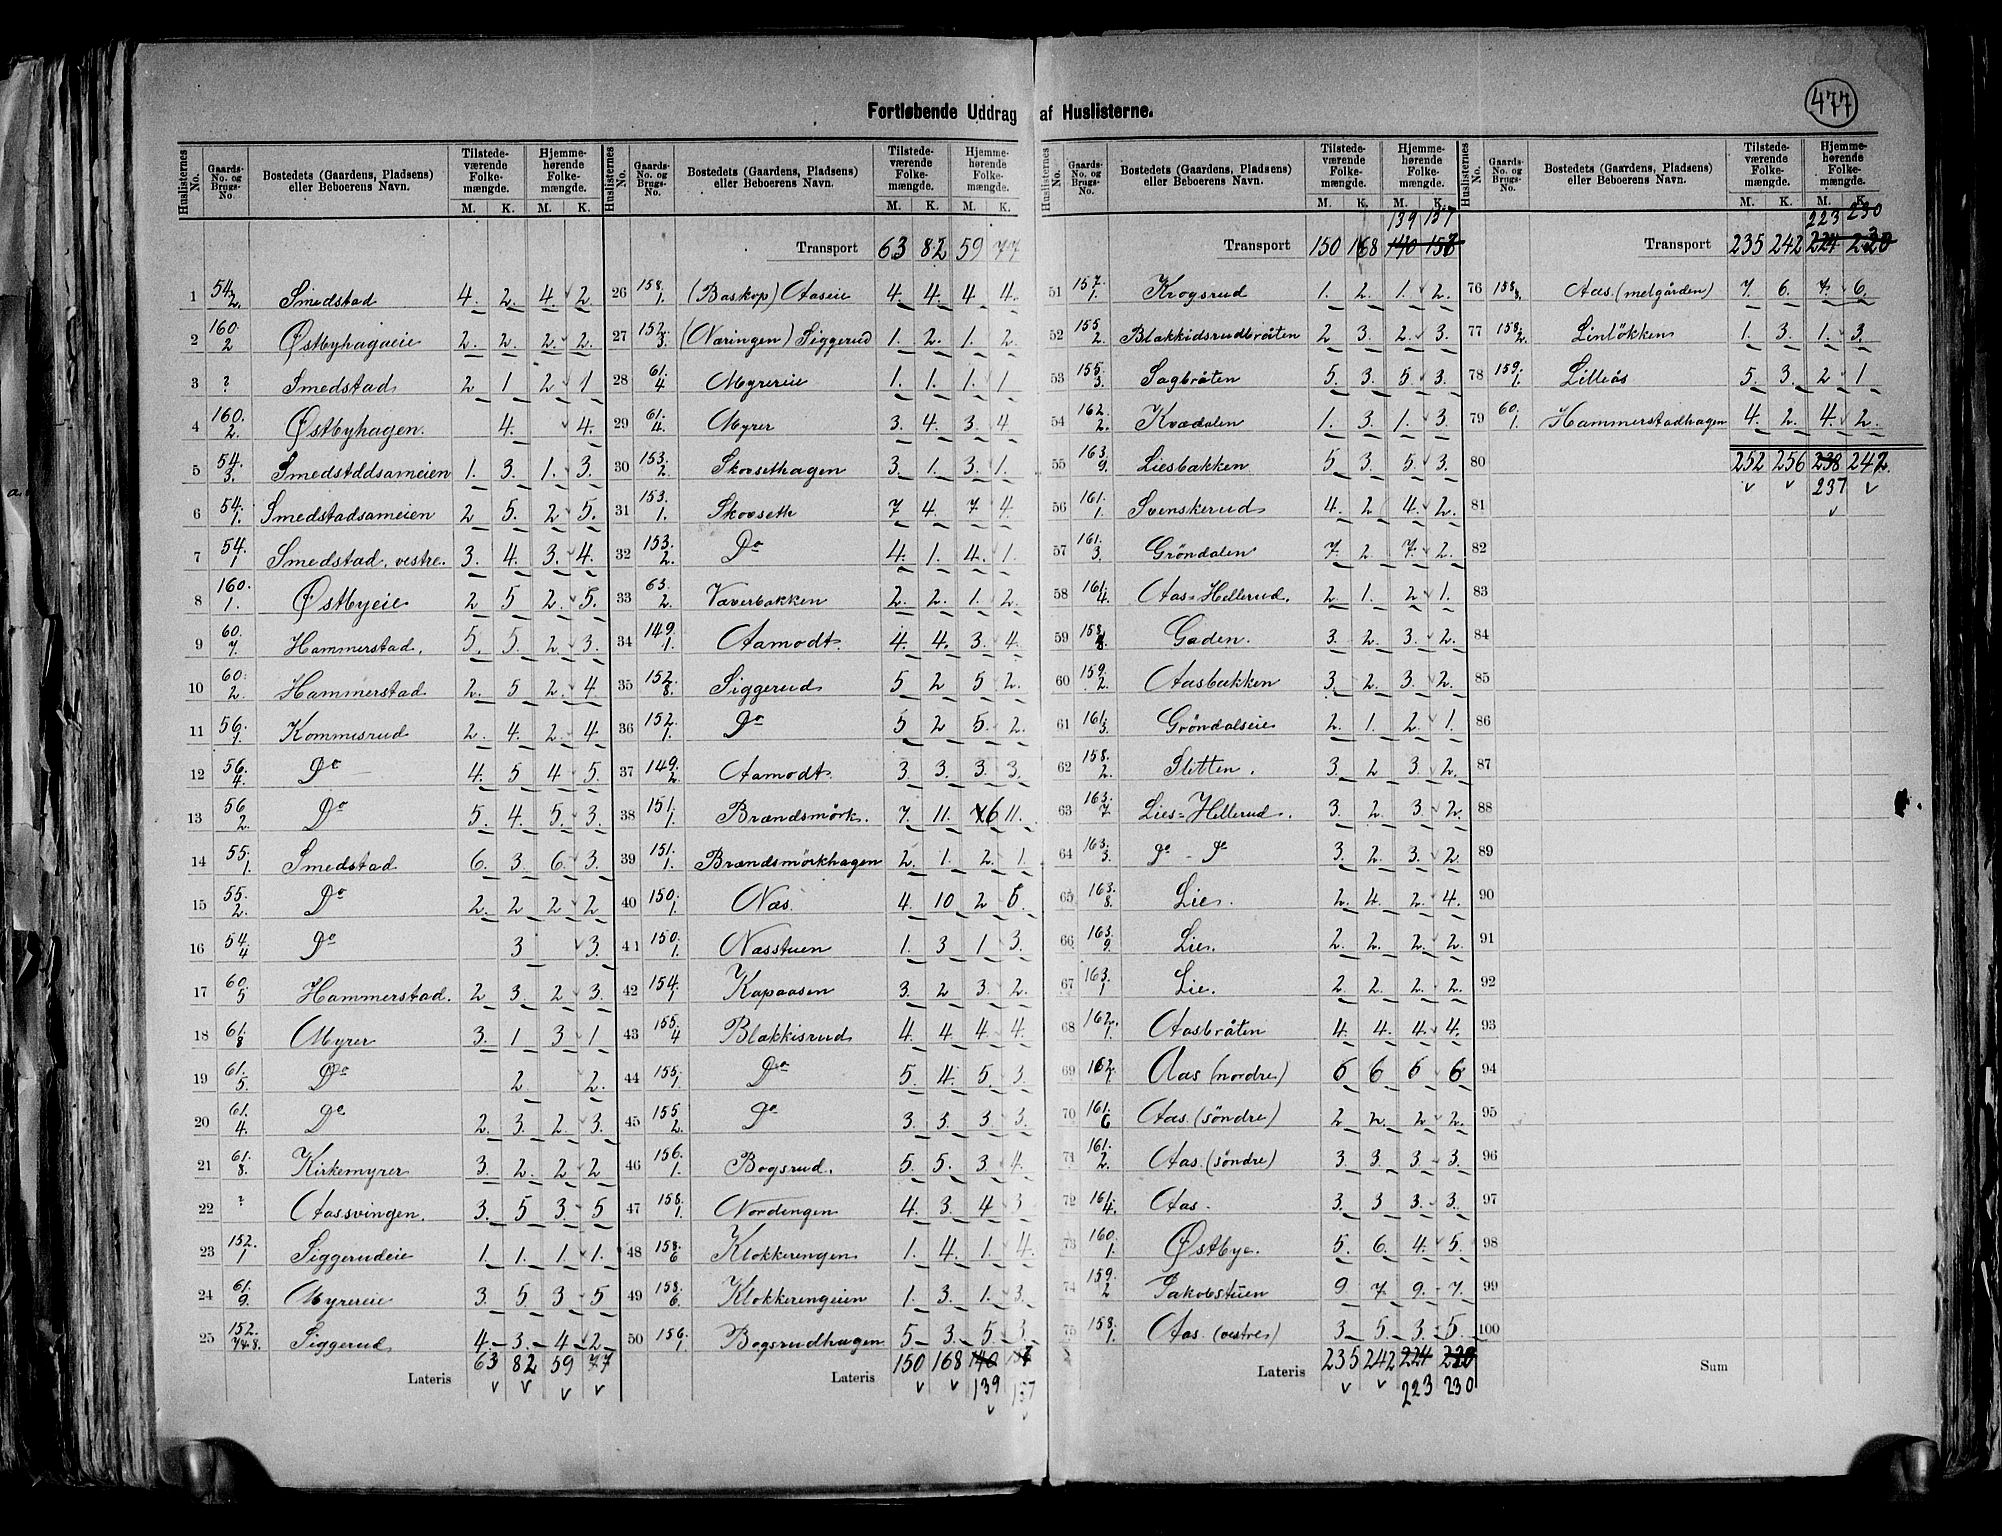 477
Fortløbende Uddrag af Huslisterne.
Huslisternes No. | Gaards- No. og Brugs- No. | Bostedets (Gaardens, Pladsens) eller Beboerens Navn. | Tilstede- værende Folke- mængde. M. K. | Hjemme- hørende Folke- mængde. M. K.
Transport 63 82 59 77
1 54/2. Smedstad 4. 2. 4. 2.
2 160./2 Østbyhagaeie 2. 2. 2. 2.
3 ? Smedstad 2 1 2 1
4 160./2. Østbyhagen. 4. 4.
5 54./3. Smedstddsameien 1. 3. 1. 3.
6 54./1. Smedstadsameien 2 5. 2 5.
7 54./1 Smedstad, vestre. 3. 4. 3. 4.
8 160./1. Østbyeie 2 5 2. 5.
9 60./7. Hammerstad, 5. 5. 2. 3.
10 60./2. Hammerstad 2. 5 2. 4
11 56./1. Kommisrud 2. 4. 2. 4
12 56./4. Do 4. 5 4 5.
13 56/2. Do 5. 4. 5. 3.
14 55./1. Smedstad 6. 3. 6. 3.
15 55./2. Do 2. 2 2 2
16 54./4 Do 3 3.
17 60./5 Hammerstad. 2 3. 2 3.
18 61./8 Myrer 3. 1 3 1
19 61./5. Do 2. 2.
20 61./4. Do 2. 3. 2. 3.
21 61./8. Kirkemyrer 3. 2. 2. 2
22 ? Aassvingen. 3. 5 3. 5
23 152./1 Siggerudeie 1. 1. 1. 1.
24 61./9. Myrereie 3. 5. 3 5
25 152./7&8. Siggerud 4. 3. 4 2.
Lateris 63 82 59 77
26 158./1. (Baskop) Aaseie 4. 4. 4. 4.
27 152./3. (Næringen) Siggerud 1. 2. 1. 2.
28 61./4 Myrereie 1. 1. 1. 1
29 61./4. Myrer 3. 4. 3. 4.
30 153./2. Skovsethagen 3. 1. 3. 1.
31 153./1. Skovseth 7 4. 7 4.
32 153./2. Do 4. 1. 4. 1.
33 63./2. Væverbakken 2. 2. 1. 2.
34 149./1. Aamodt. 4. 4. 3. 4.
35 152./8. Siggerud 5 2 5 2.
36 152./1. Do 5 2 5. 2.
37 149./2. Aamodt. 3. 3. 3. 3.
38 151./1. Brændsmörk. 7. 11. 6 11.
39 151./1. Brændsmörkhagen 2. 1. 2. 1.
40 150./1. Næs. 4. 10 2 6.
41 150./1. Næsstuen 1. 3 1 3.
42 154./1 Kapaasen 3. 2 3. 2.
43 155./4 Blakkisrud 4. 4. 4. 4.
44 155./1 Do 5. 4. 5. 3.
45 155/2. Do 3. 3. 3. 3.
46 156./1. Bogsrud. 5. 5. 3 4.
47 158./1. Nordengen 4. 3. 4 3
48 158./6 Klokkerengen 1. 4. 1. 4.
49 158./6. Klokkerengeien 1. 3. 1. 3.
50 156./1. Bogsrudhagen 5. 3. 5. 3.
Lateris 150 168 140
139 137
139 137
Transport 150 168 140 158
51 157./1. Krogsrud 1. 2. 1. 2.
52 155./2. Blakkidsrudbråten 2 3. 2. 3.
53 155./3. Sagbråten 5. 3. 5 3.
54 162./2. Kvædalen 1. 3. 1. 3.
55 163./9. Liesbakken 5. 3. 5 3.
56 161./1. Svenskerud 4. 2 4. 2.
57 161./3. Gröndalen 7. 2. 7. 2.
58 161./4. Aas=Hellerud. 2. 1. 2 1.
59 158./8. Gaden. 3. 2. 3. 2.
60 159./2. Aasbakken 3. 2. 3. 2.
61 161./3. Gröndalseie 2. 1. 2. 1.
62 158./2. Sletten. 3. 2 3. 2.
63 163./7 Lies=Hellerud. 3. 2. 3 2.
64 163./3. Do - Do 3. 2. 3. 2.
65 163./8. Lie. 2. 4. 2. 4.
66 163./9. Lie. 2. 2. 2. 2
67 163./1 Lie. 2. 2. 2. 2.
68 162./1. Aasbråten 4. 4. 4. 4.
69 162./1. Aas (nordre) 6 6 6 6
70 161./6 Aas. (söndre) 2 2. 2 2.
71 161./2. Aas. (söndre) 3. 3. 3. 3.
72 161./4. Aas. 3. 3 3. 3.
73 160./1. Østbye. 5. 6. 4. 5.
74 159./2 Jakobstuen 9 7. 9. 7.
75 158./1. Aas. (vestre) 3 5. 3. 5.
Lateris 235 242 224 220
223 230
223 230
Transport 235 242 224 220
76 158./3. Aas. (melgården) 7. 6. 7. 6.
77 158./2. Linlökken 1. 3. 1. 3.
78 159./1. Lilleås 5. 3. 2 1
79 60./1. Hammerstadhagen 4. 2. 4. 2.
80 252 256 238 242.
237
81
82
83
84
85
86
87
88
89
90
91
92
93
94
95
96
97
98
99
100
Sum